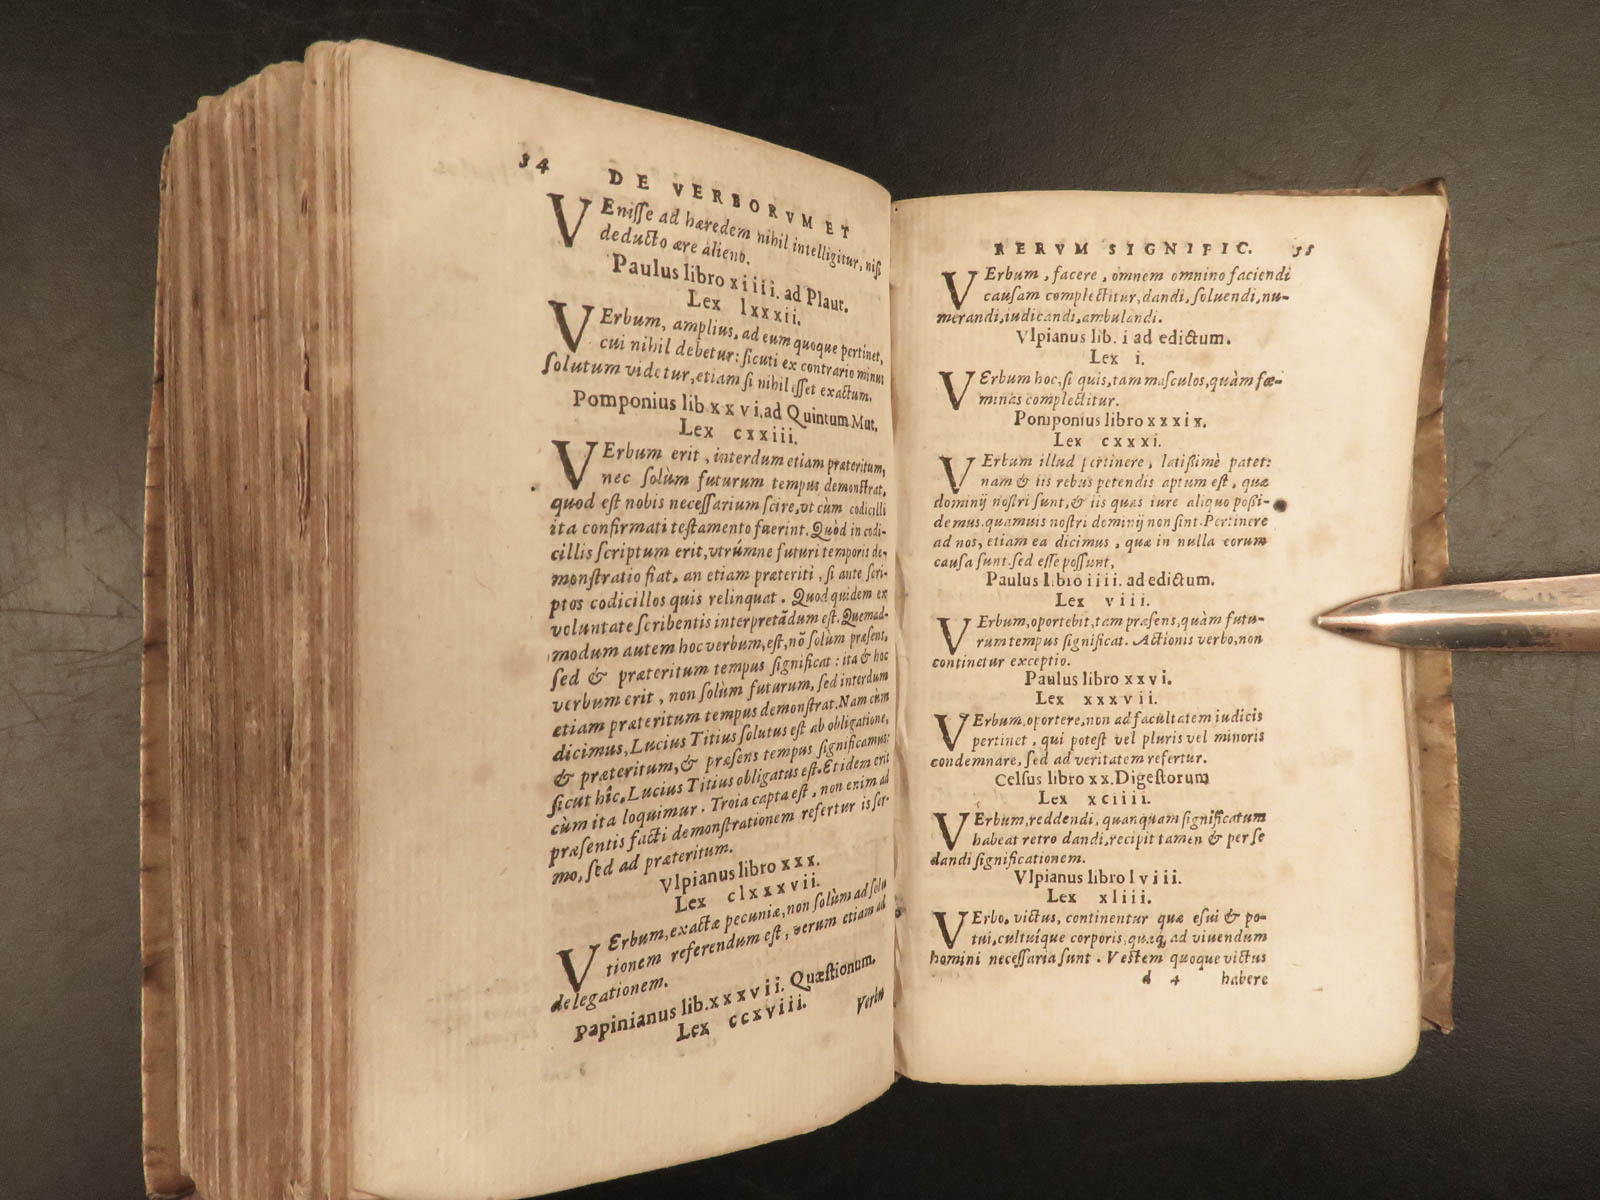 34
DE VERBORVM ET
VEnisse ad hæredem nihil intelligitur, nisi
deducto ære alieno.
Paulus libro xiiii. ad Plaut.
Lex lxxxii.
VErbum, amplius, ad eum quoque pertinet,
cui nihil debetur: sicuti ex contrario minus
solutum videtur, etiam si nihil esset exactum.
Pomponius lib. xxvi. ad Quintum Mut.
Lex cxxiii.
VErbum erit, interdum etiam præteritum,
nec solùm futurum tempus demonstrat.
quod est nobis necessarium scire, vt cùm codicilli
ita confirmati testamento fuerint. Quòd in codi-
cillis scriptum erit, vtrúmne futuri temporis de-
monstratio fiat, an etiam præteriti, si ante scri-
ptos codicillos quis relinquat. Quod quidem ex
voluntate scribentis interpretãdum est. Quemad-
modum autem hoc verbum, est, nõ solùm præsent,
sed & præteritum tempus significat: ita & hoc
verbum erit, non solùm futurum, sed interdum
etiam præteritum tempus demonstrat. Nam cùm
dicimus, Lucius Titius solutus est ab obligatione,
& præteritum, & præsens tempus significamus:
sicut hîc, Lucius Titius obligatus est. Et idem erit
cùm ita loquimur. Troia capta est, non enim ad
præsentis facti demonstrationem refertur is ser-
mo, sed ad præteritum.
Vlpianus libro xxx.
Lex clxxxvii.
VErbum, exactæ pecuniæ, non solùm ad solu
tionem referendum est, verum etiam ad
delegationem.
Papinianus lib. xxxvii. Quæstionum.
Lex ccxviii.
Verbo
RERVM SIGNIFIC. 35
VErbum, facere, omnem omnino faciendi
causam complectitur, dandi, soluendi, nu-
merandi, iudicandi, ambulandi.
Vlpianus lib. i ad edictum.
Lex i.
VErbum hoc, si quis, tam masculos, quàm fœ-
minas complectitur.
Pomponius libro xxxix.
Lex cxxxi.
VErbum illud pertinere, latissimè patet:
nam & iis rebus petendis aptum est, quæ
dominij nostri sunt, & iis quas iure aliquo possi-
demus. quamuis nostri dominij non sint. Pertinere
ad nos, etiam ea dicimus, quæ in nulla eorum
causa sunt. sed esse possunt,
Paulus libro iiii. ad edictum.
Lex viii.
VErbum, oportebit, tam præsens, quàm futu-
rum tempus significat. Actionis verbo, non
continetur exceptio.
Paulus libro xxvi.
Lex xxxvii.
VErbum, oportere, non ad facultatem iudicis
pertinet, qui potest vel pluris vel minoris
condemnare, sed ad veritatem refertur.
Celsus libro xx. Digestorum
Lex xciiii.
VErbum, reddendi, quanquam significatum
habeat retro dandi, recipit tamen & per se
dandi significationem.
Vlpianus libro lviii.
Lex xliii.
VErbo, victus, continentur quæ esui & po-
tui, cultuíque corporis, quæq; ad viuendum
homini necessaria sunt. Vestem quoque victus
d 4 habere